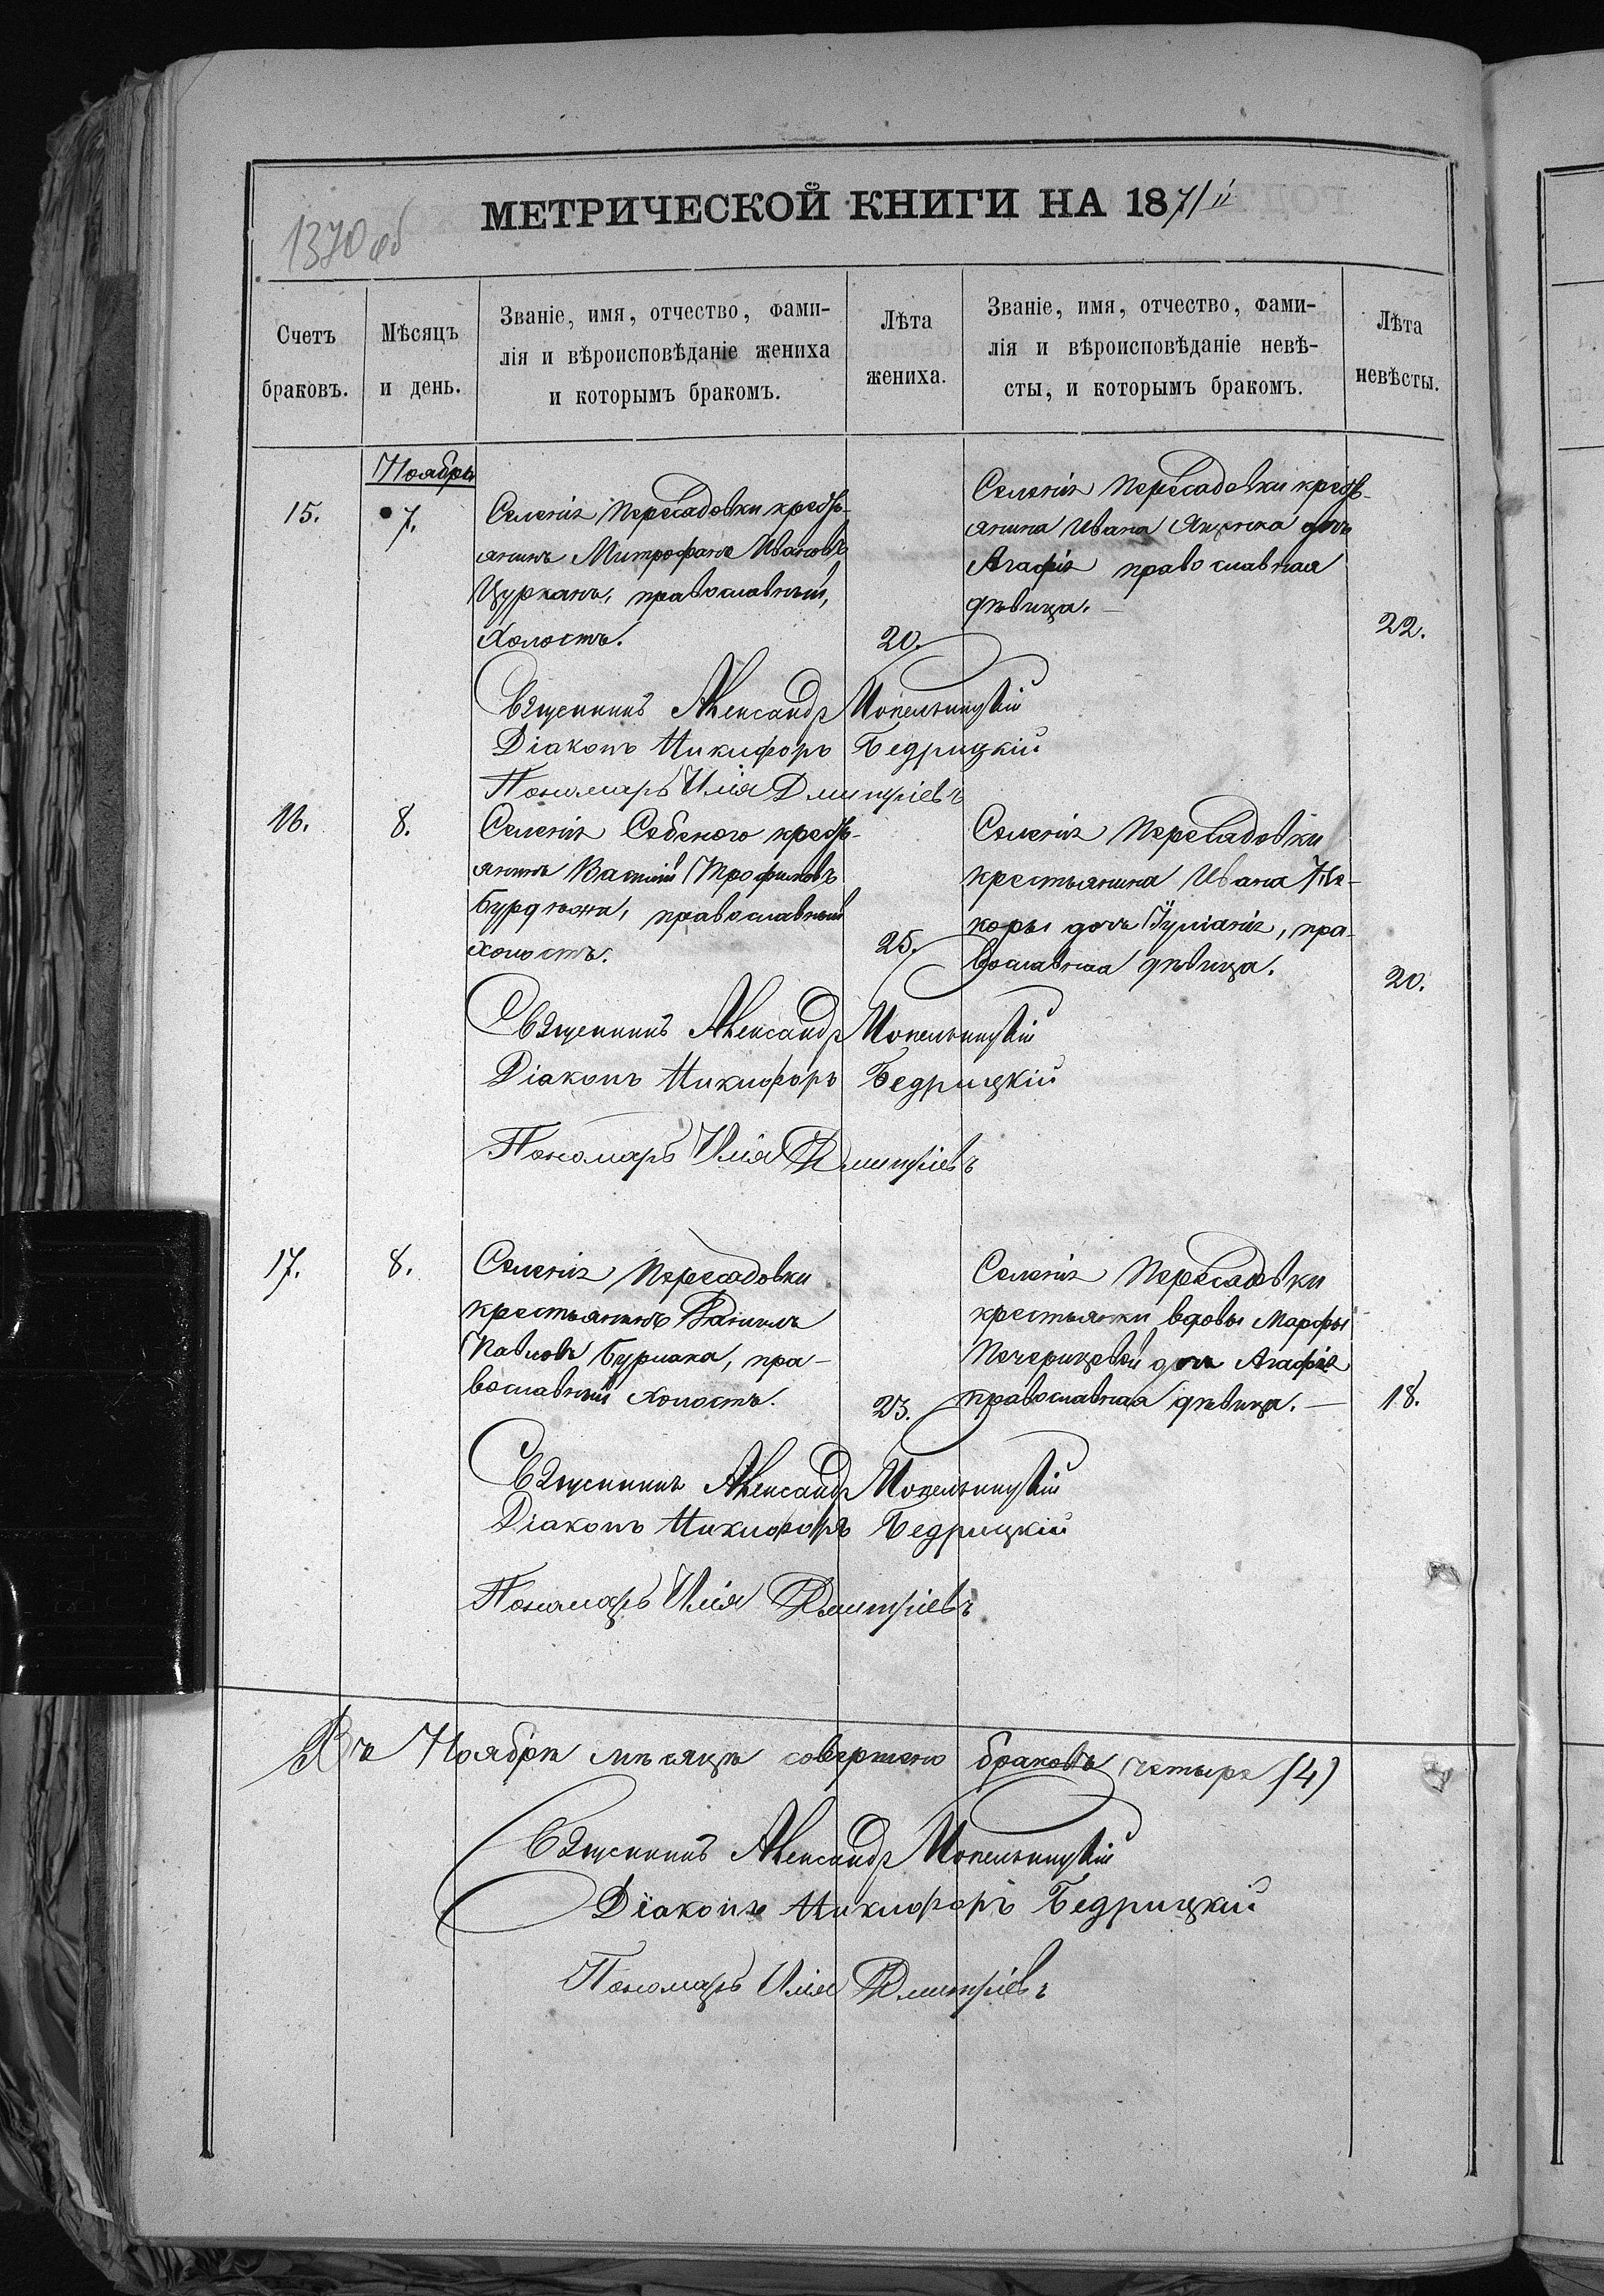 МЕТРИЧЕСКОЙ КНИГИ НА 1871й
1370 об
Счетъ
браковъ.
Мѣсяцъ
и день.
Званіе, имя, отчество, фами-
лія и вѣроисповѣданіе жениха
и которымъ бракомъ.
Лѣта
жениха.
Званіе, имя, отчество, фами-
лія и вѣроисповѣданіе невѣ-
сты, и которымъ бракомъ.
Лѣта
невѣсты.
Ноябрь
15.
7.
Селенія Пересадовки кресть-
янинъ Митрофанъ Ивановъ
Цурканъ, православный,
холостъ.
20.
Селенія Пересадовки кресть-
янина Ивана дочь
Агафія православная
дѣвица.
22.
Священникъ Александр
Діаконъ Никифоръ Бедрицкій
Пономарь Илія Дмитріевъ
16.
8.
Селенія Себеного кресть-
янинъ Василій Трофимовъ
православный
холостъ.
25.
Селенія Пересадовки
крестьянина Ивана Не-
коры дочь Іуліанія, пра-
вославная дѣвица.
20.
Священникъ Александр
Діаконъ Никифоръ Бедрицкій
Пономарь Илія Дмитріевъ
17.
8.
Селенія Пересадовки
крестьянинъ Даниилъ
Павловъ Бурлака, пра-
вославный холостъ.
23.
Селенія Пересадовки
крестьянки вдовы Марфы
Печерицевой дочь Агафія
православная дѣвица. —
18.
Священникъ Александр
Діаконъ Никифоръ Бедрицкій
Пономарь Илія Дмитріевъ
Въ Ноябрѣ мѣсяцѣ совершено браковъ четыре (4)
Священникъ Александр
Діаконъ Никифоръ Бедрицкій
Пономарь Илія Дмитріевъ